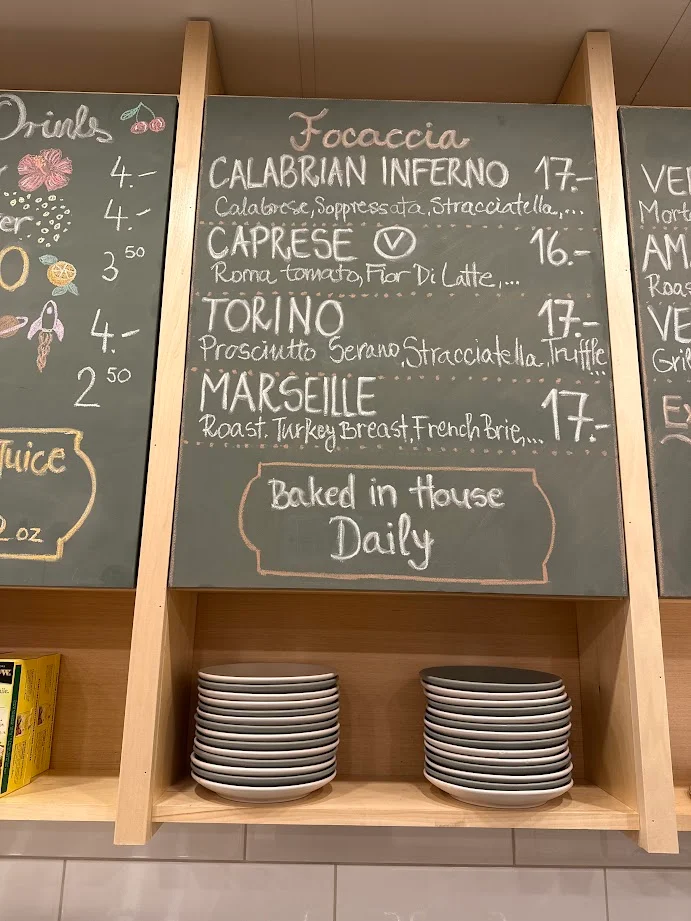 Drinks
4.-
4.-
3 50
4.-
2 50
Juice
oz
Focaccia
CALABRIAN INFERNO 17.-
Calabrese, Soppressata, Stracciatella,...
CAPRESE V 16.-
Roma tomato, Fior Di Latte,...
TORINO 17.-
Prosciutto Serano, Stracciatella, Truffle...
MARSEILLE 17.-
Roast. Turkey Breast, French Brie,...
Baked in House
Daily
VE
Mort
AM
Roas
VE
Gril
Ex